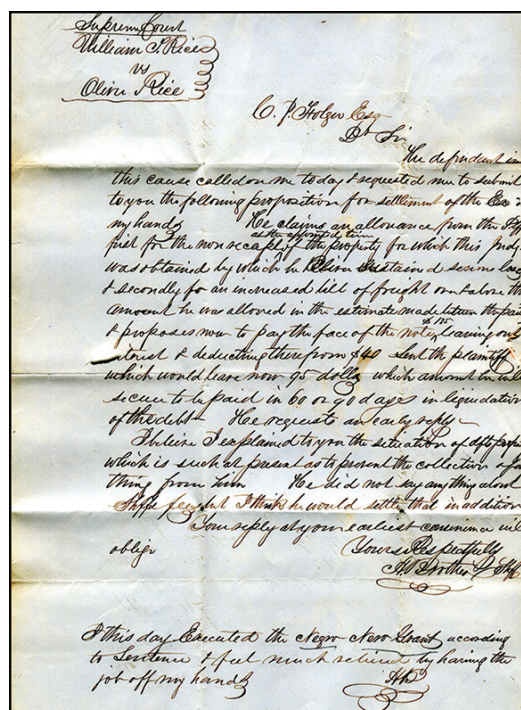 Supreme Court
William S. Rice
vs
Oliver Rice
C. J. Folger Esq
Dr Sir
The defendant in
this cause called on me to day & requested me to submit
to you the following proposition for settlement of the Exn in
my hands He claims an allowance from the Plff
first for the non receipt of the property for which this Judgt
at the appointed time
was obtained by which he Oliver sustained serious loss
& secondly for an increased bill of freight over & above the
amount he was allowed in the estimate made between the parties
$135
& proposes now to pay the face of the notes leaving out
interest & deducting therefrom $40 Sent the plaintiff
which would leave now 95 dolls which amount he will
secure to be paid in 60 or 90 days in liquidation
of the debt He requests an early reply
I believe I explained to you the situation of defts property
which is such at present as to prevent the collection of any
thing from him He did not say anything about
Shffs fees but I think he would settle that in addition
Your reply at your earliest convenience will
oblige Yours Respectfully
Shff
I this day Executed the Negro Nero Grant according
to Sentence & feel much relieved by having the
job off my hands